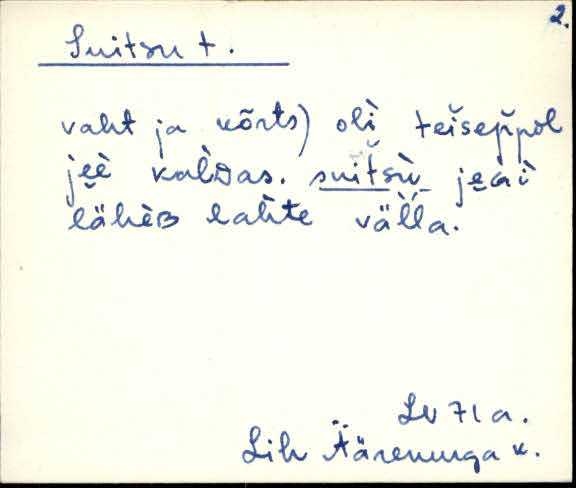 2.
Suitsu t.
vaht ja kõrts) oli teisejippol
jẹẹ kalDas. suitsù jẹài
lähèB lahte välla.
LV 71 a.
Lih Ääremurga k.